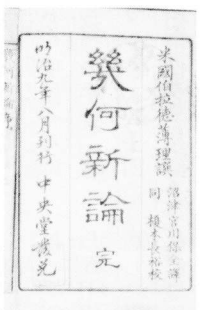 米國伯拉德薄理譔
沼津 宮川保全譯
同 植本長裕校
幾何新論 完
明治九年八月刊行 中央堂發兌